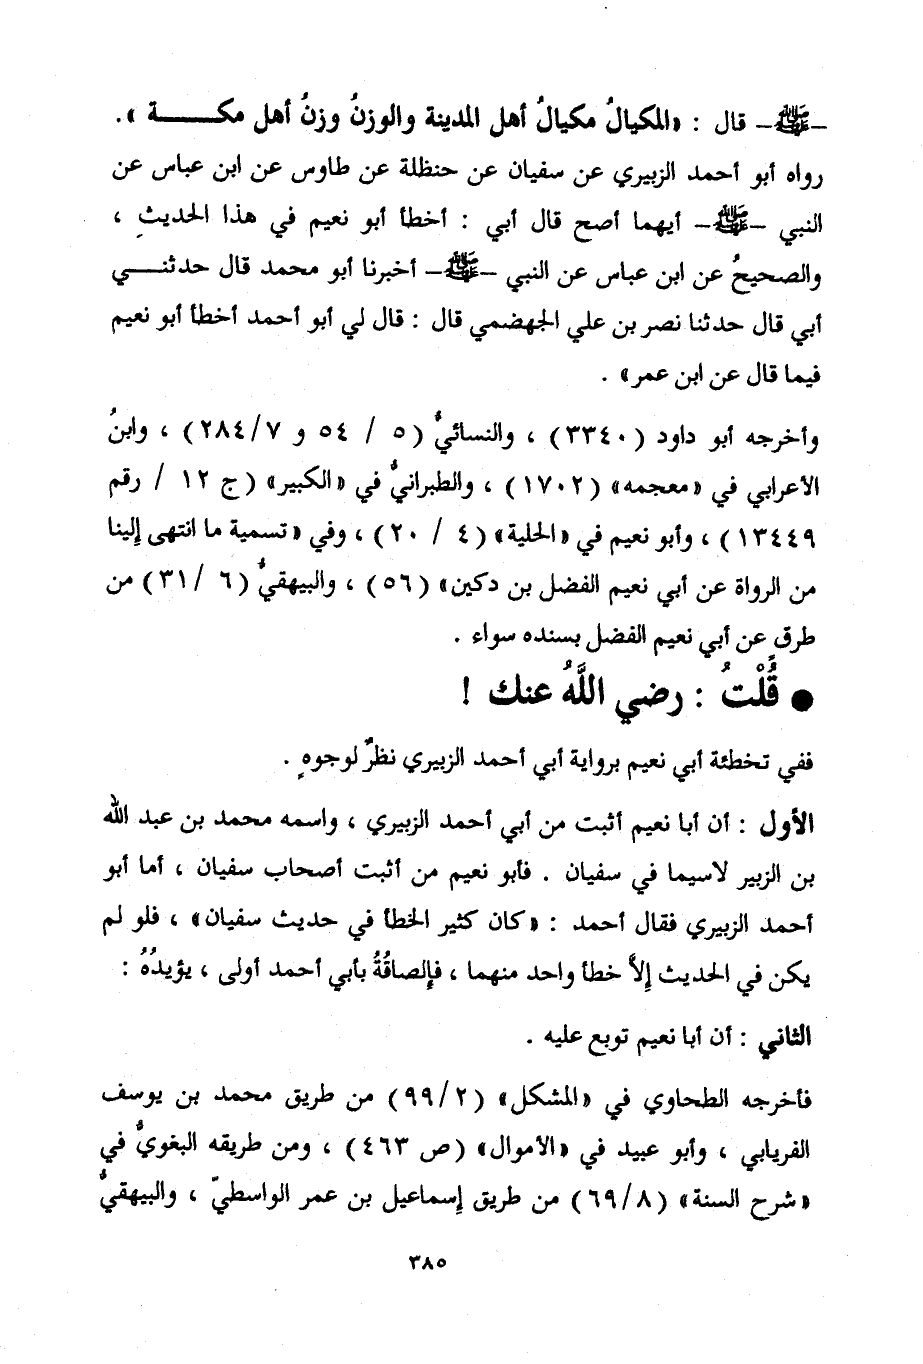 –ﷺ– قال : «المكيالُ مكيالُ أهل المدينة والوزنُ وزنُ أهل مكـــة » .
رواه أبو أحمد الزبيري عن سفيان عن حنظلة عن طاوس عن ابن عباس عن
النبي –ﷺ– أيهما أصح قال أبي : أخطأ أبو نعيم في هذا الحديث ،
والصحيحُ عن ابن عباس عن النبي –ﷺ– أخبرنا أبو محمد قال حدثنـــي
أبي قال حدثنا نصر بن علي الجهضمي قال : قال لي أبو أحمد أخطأ أبو نعيم
فيما قال عن ابن عمر» .
وأخرجه أبو داود (٣٣٤٠) ، والنسائيُّ (٥ / ٥٤ و ٢٨٤/٧) ، وابنُ
الأعرابي في «معجمه» (١٧٠٢) ، والطبرانيُّ في «الكبير» (ج ١٢ / رقم
١٣٤٤٩) ، وأبو نعيم في «الحلية» (٤ / ٢٠) ، وفي «تسمية ما انتهى إلينا
من الرواة عن أبي نعيم الفضل بن دكين» (٥٦) ، والبيهقيُّ (٦ /٣١) من
طرق عن أبي نعيم الفضل بسنده سواء .
● قُلْتُ : رضي اللَّهُ عنك !
ففي تخطئة أبي نعيم برواية أبي أحمد الزبيري نظرٌ لوجوهٍ .
الأول : أن أبا نعيم أثبت من أبي أحمد الزبيري ، واسمه محمد بن عبد الله
بن الزبير لاسيما في سفيان . فأبو نعيم من أثبت أصحاب سفيان ، أما أبو
أحمد الزبيري فقال أحمد : «كان كثير الخطأ في حديث سفيان» ، فلو لم
يكن في الحديث إلاَّ خطأ واحد منهما ، فإلصاقُهُ بأبي أحمد أولى ، يؤيدُهُ :
الثاني : أن أبا نعيم توبع عليه .
فأخرجه الطحاوي في «المشكل» (٩٩/٢) من طريق محمد بن يوسف
الفريابي ، وأبو عبيد في «الأموال» (ص ٤٦٣) ، ومن طريقه البغويُّ في
«شرح السنة» (٦٩/٨) من طريق إسماعيل بن عمر الواسطيّ ، والبيهقيُّ
٣٨٥